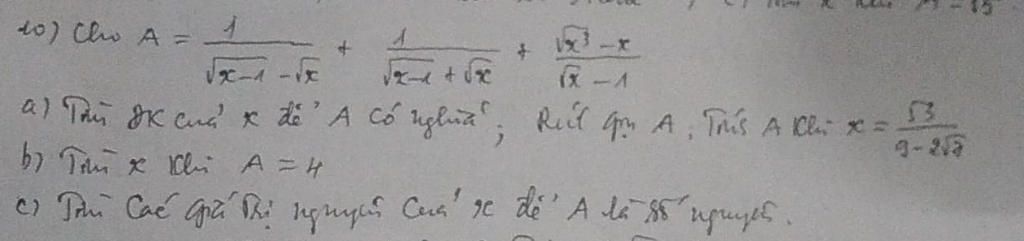 10) Cho A = \frac{1}{\sqrt{x-1} - \sqrt{x}} + \frac{1}{\sqrt{x-1} + \sqrt{x}} + \frac{\sqrt{x^3} - x}{\sqrt{x} - 1}
a) Tìm ĐK của x để A có nghĩa; Rút gọn A; Tính A khi x = \frac{\sqrt{3}}{9-2\sqrt{7}}
b) Tìm x khi A = 4
c) Tìm các giá trị nguyên của x để A là số nguyên.